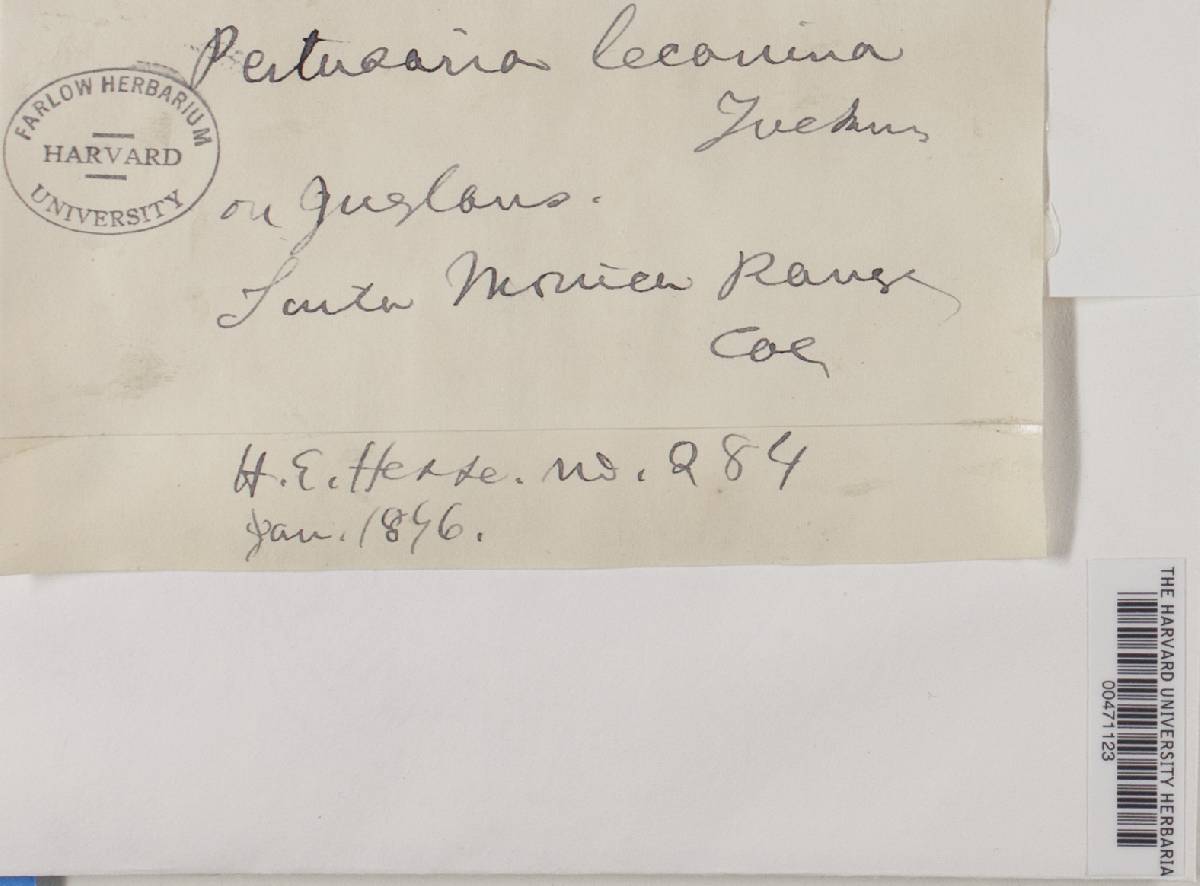 Pertusaria lecanina
Tuckm
on Juglans.
Santa Monica Range
Cal
FARLOW HERBARIUM
HARVARD
UNIVERSITY
H. E. Hasse. no. 284
Jan. 1896.
THE HARVARD UNIVERSITY HERBARIA
00471123